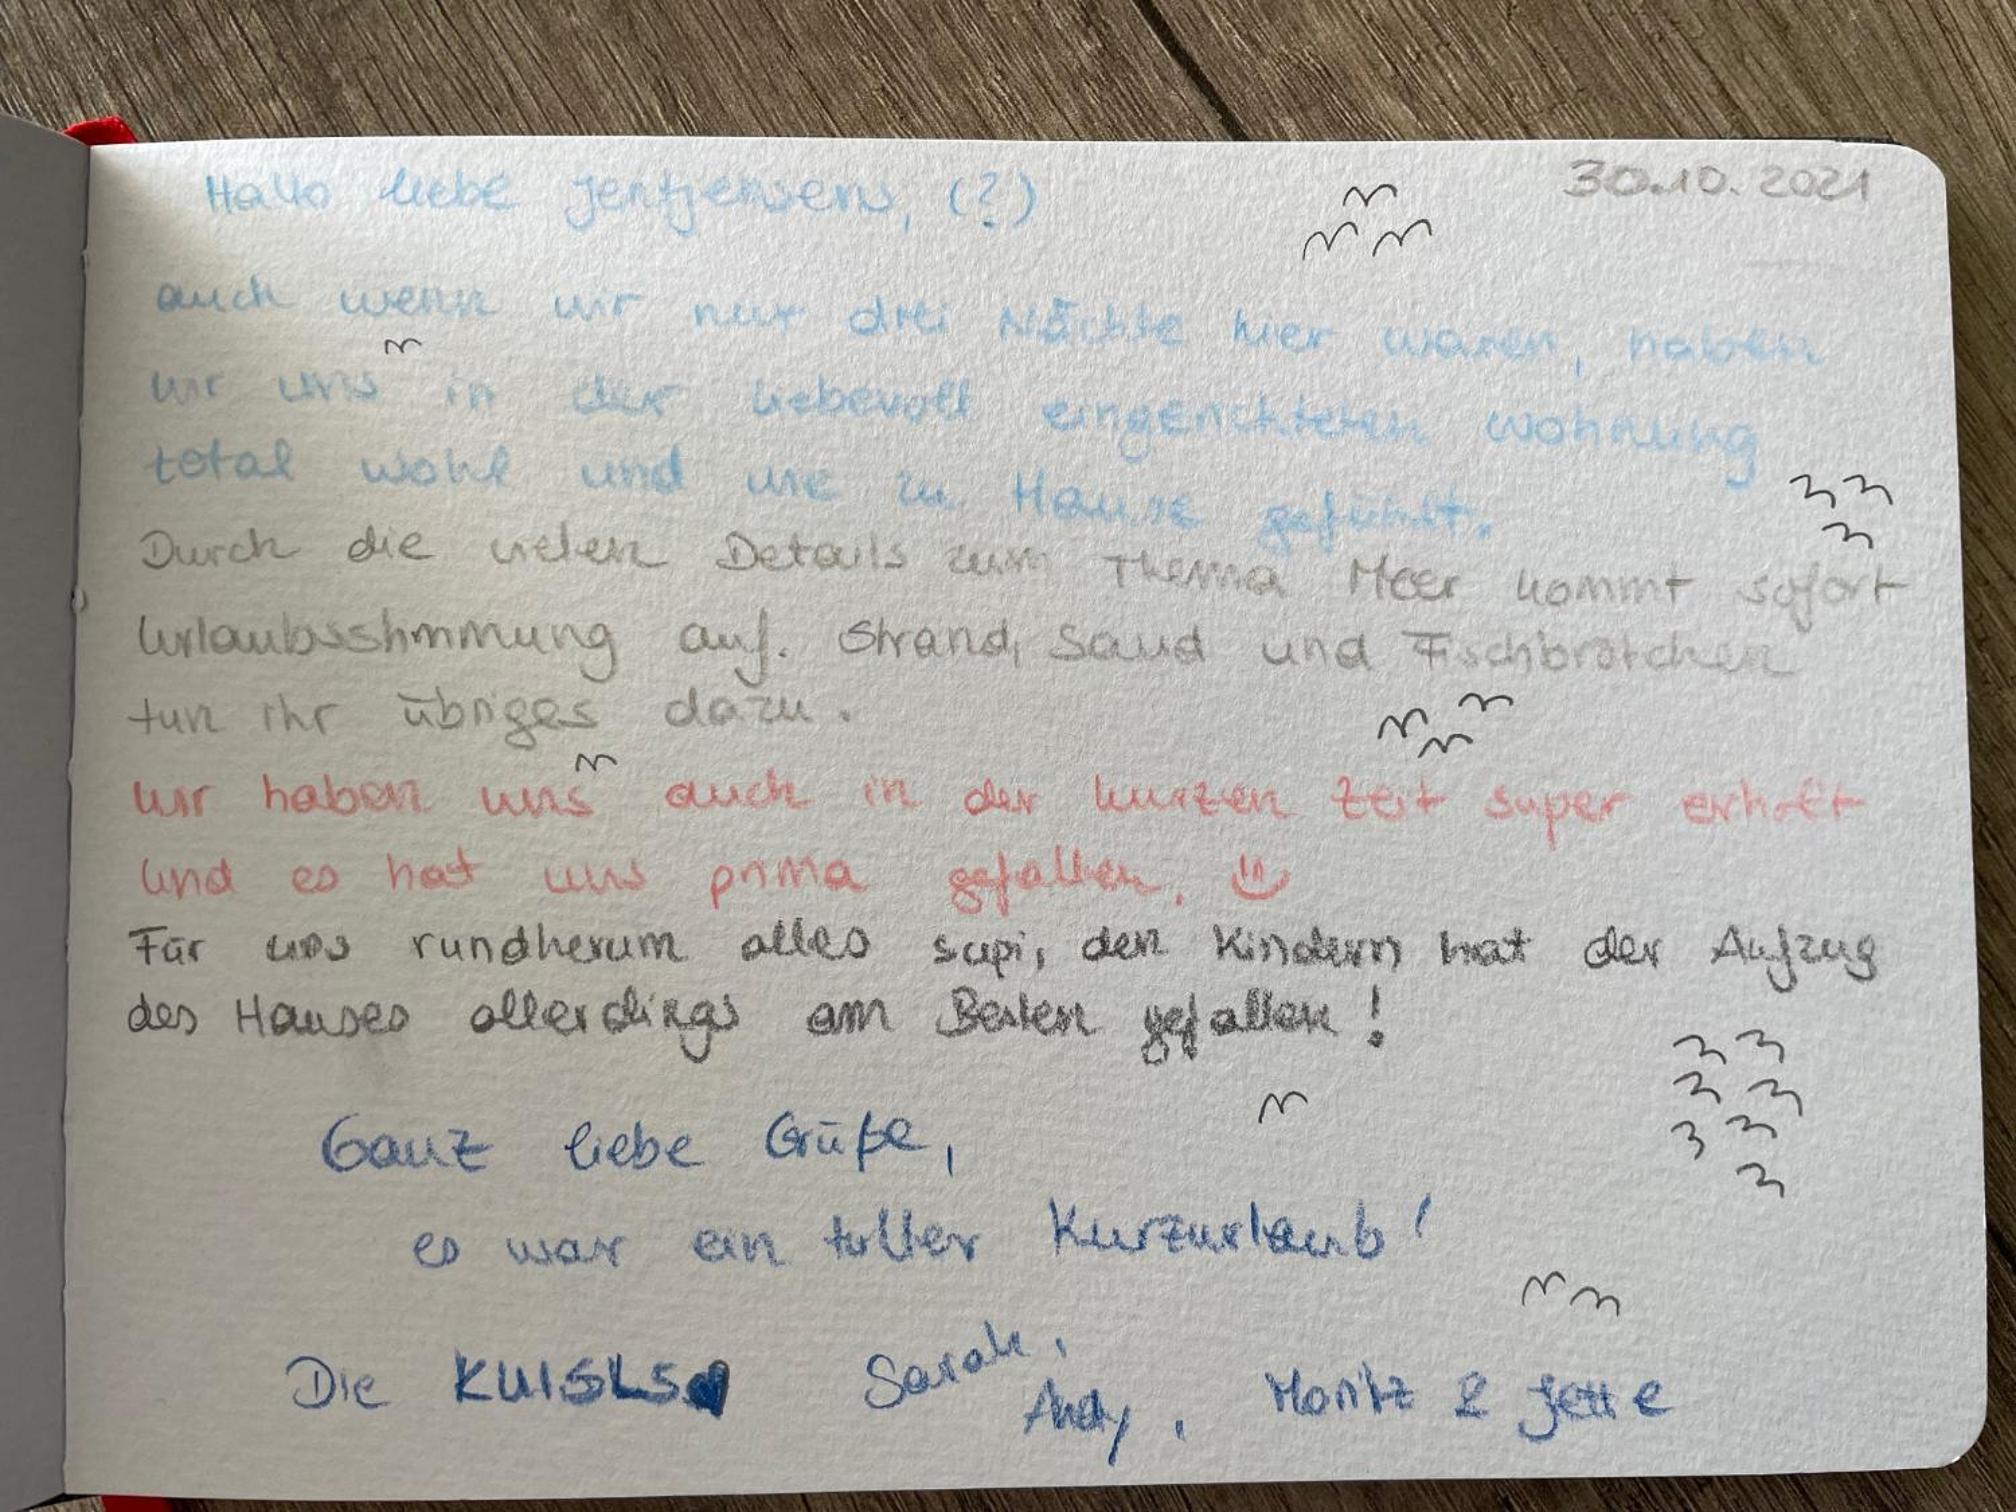 30.10.2021
Hallo liebe Jentjensens, (?)
auch wenn wir nur drei Nächte hier waren, haben
wir uns in der liebevoll eingerichteten Wohnung
total wohl und wie zu Hause gefühlt.
Durch die vielen Details zum Thema Meer kommt sofort
Urlaubsstimmung auf. Strand, Sand und Fischbrötchen
tun ihr übriges dazu.
Wir haben uns auch in der kurzen Zeit super erholt
und es hat uns prima gefallen.
Für uns rundherum alles supi, den Kindern hat der Aufzug
des Hauses allerdings am Besten gefallen!
Ganz liebe Grüße,
es war ein toller Kurzurlaub!
Die KUISLS Sarah,
Andy, Moritz & Jette